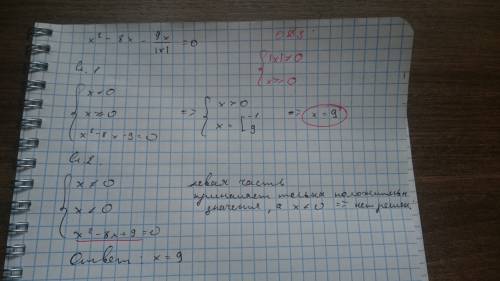 x² - 8x - 9x/|x| = 0
ОДЗ:
{ |x| ≠ 0
x ≠ 0
сл. 1
{ x ≠ 0
x ≥ 0
x² - 8x - 9 = 0
=> { x > 0
x = [ -1
9
=> x = 9
сл. 2
{ x ≠ 0
x < 0
x² - 8x + 9 = 0
левая часть
принимает только положительн
значения, а x < 0 => нет решен
Ответ: x = 9